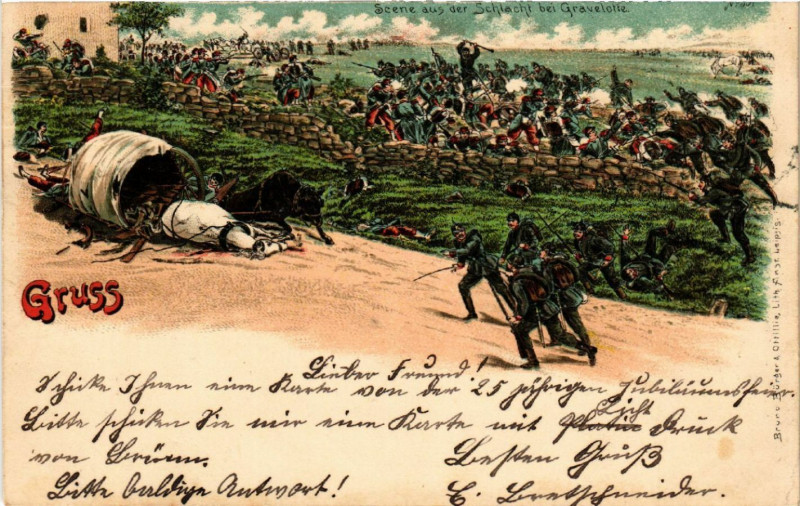 Scene aus der Schlacht bei Gravelotte.
Gruss
Lieber Freund!
Schicke Ihnen eine Karte von der 25 jährigen Jubiläumsfeier.
Bitte schicken Sie mir eine Karte mit Licht Druck
von Brünn.
Besten Gruß
Bitte baldige Antwort!
E. Bretschneider.
Bruno Bürger & Ottillie, Lith. Anst. Leipzig.